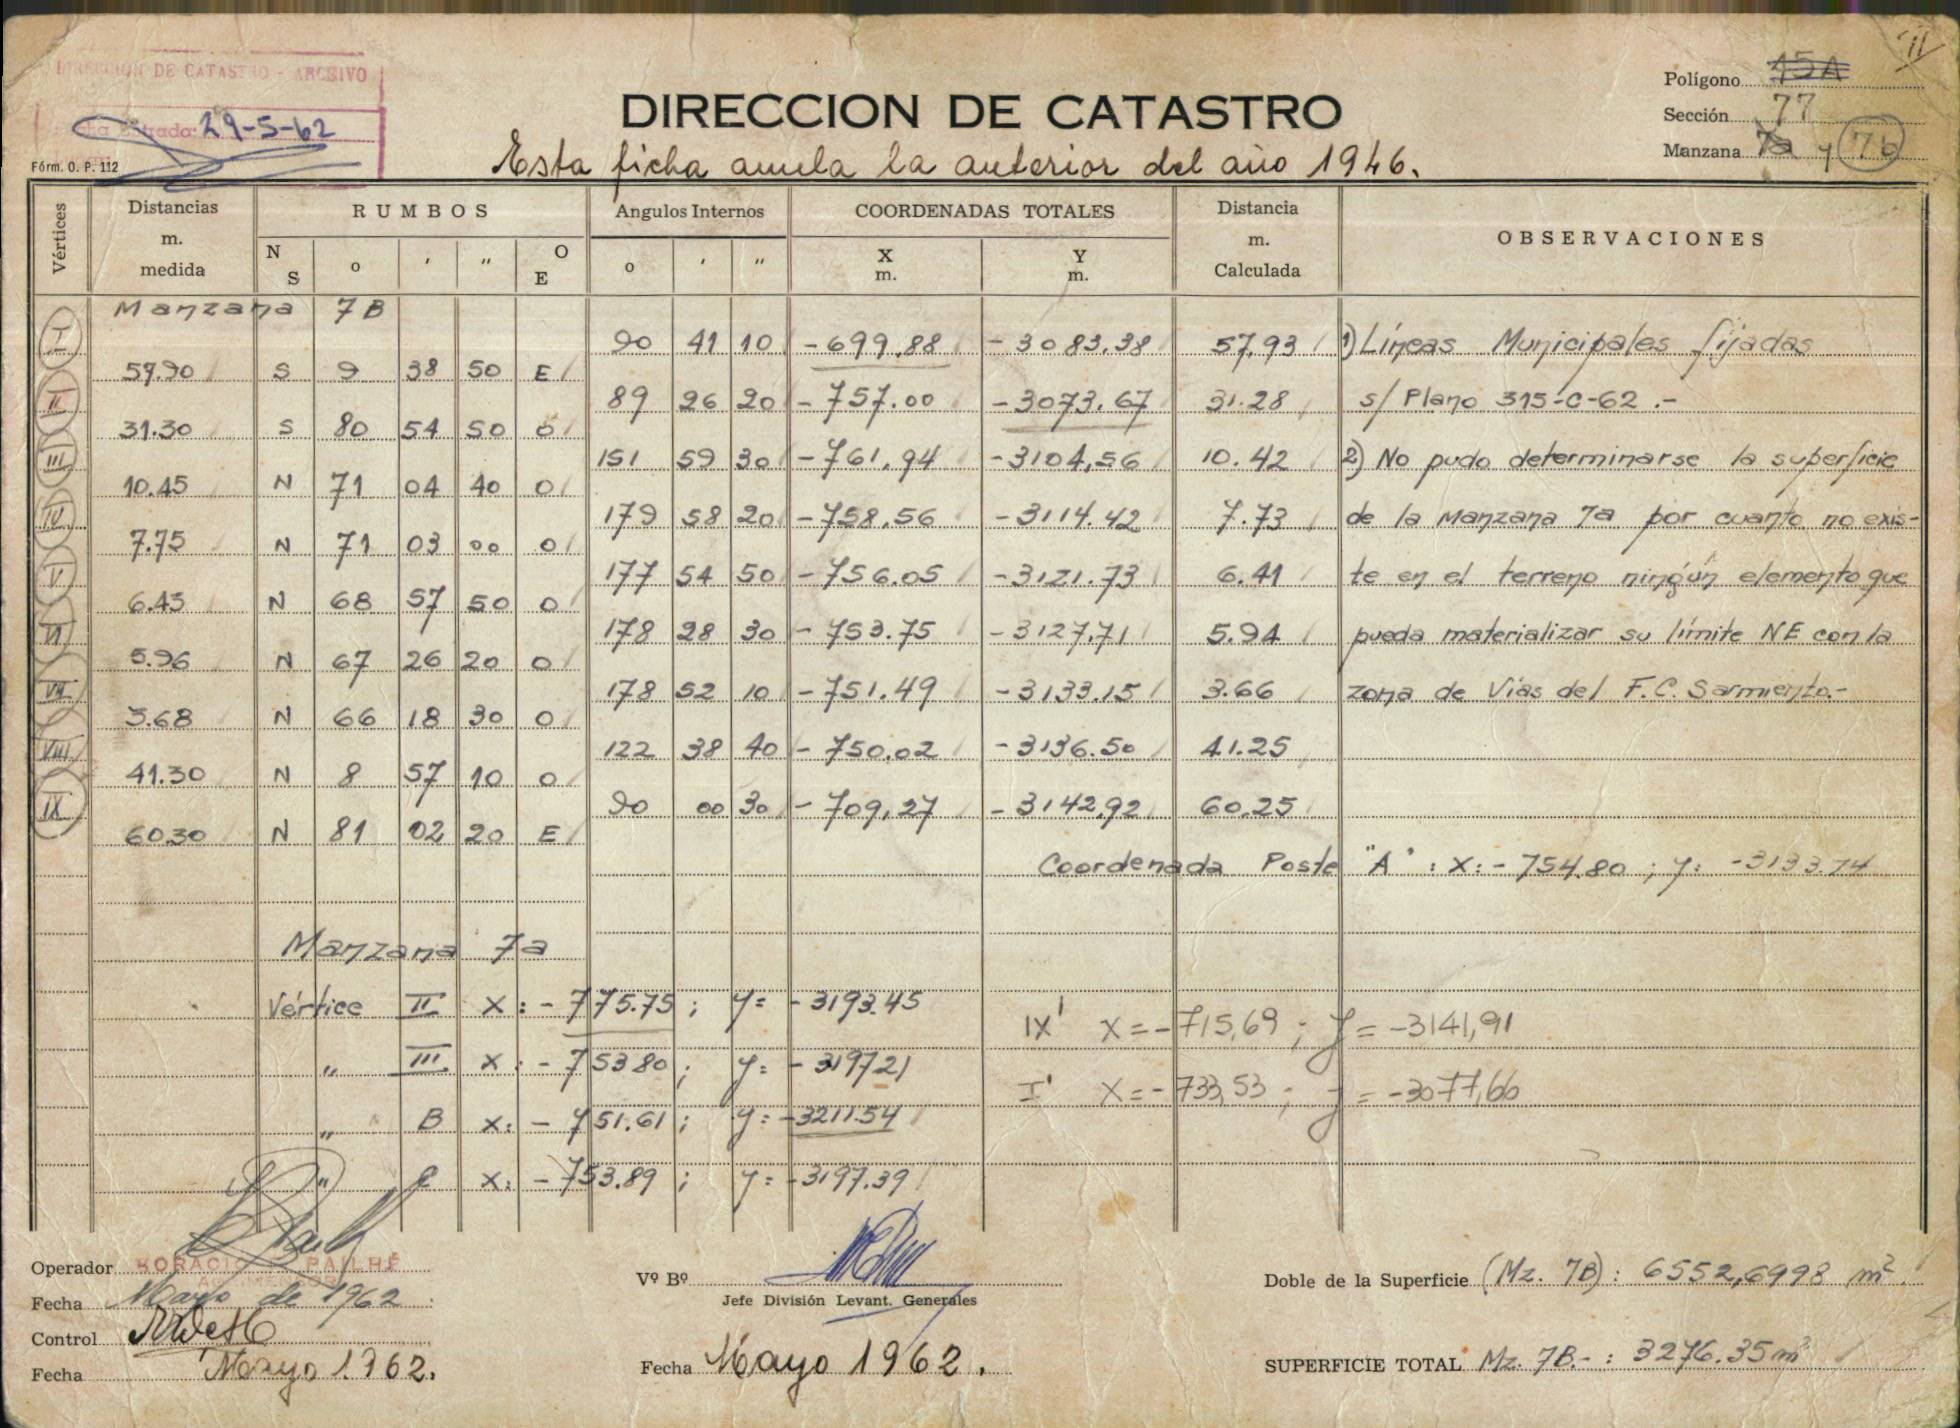 DIRECCION DE CATASTRO - ARCHIVO
Fecha Entrada: 29-5-62
Fórm. O. P. 112
DIRECCION DE CATASTRO
Esta ficha anula la anterior del año 1946.
Polígono 45A
Sección 77
Manzana 7a y 7b
Vértices
Distancias m. medida
RUMBOS
Angulos Internos
COORDENADAS TOTALES
Distancia m. Calculada
OBSERVACIONES
N S o ' " O E
o ' "
X m. Y m.
Manzana 7B
I 90 41 10 -699.88 -3083.38 57.93 1) Líneas Municipales fijadas
59.90 S 9 38 50 E
II 89 26 20 -757.00 -3073.67 31.28 s/ Plano 315-C-62.-
31.30 S 80 54 50 O
III 151 59 30 -761,94 -3104,56 10.42 2) No pudo determinarse la superficie
10.45 N 71 04 40 O
IV 179 58 20 -758,56 -3114.42 7.73 de la Manzana 7a por cuanto no exis-
7.75 N 71 03 00 O
V 177 54 50 -756.05 -3121.73 6.41 te en el terreno ningún elemento que
6.43 N 68 57 50 O
VI 178 28 30 -753.75 -3127,71 5.94 pueda materializar su límite NE con la
5.96 N 67 26 20 O
VII 178 52 10 -751.49 -3133.15 3.66 zona de Vías del F.C. Sarmiento.-
3.68 N 66 18 30 O
VIII 122 38 40 -750.02 -3136.50 41.25
41.30 N 8 57 10 O
IX 90 00 30 -709,27 -3142,92 60.25
60.30 N 81 02 20 E
Coordenada Poste "A" : X: -754.80 ; y: -3133.74
Manzana 7a
Vértice II X: -775.75 ; y= -3193.45
IX' X=-715,69 ; y=-3141,91
" III X: -753.80 ; y= -3197.21
I' X=-733,53 ; y=-3077,66
" B X: -751.61 ; y= -3211.54
" C X: -753.89 ; y= -3197.39
Operador HORACIO PAILHÉ
Fecha Mayo de 1962.
Control
Fecha Mayo 1962.
Vº Bº
Jefe División Levant. Generales
Fecha Mayo 1962.
Doble de la Superficie (Mz. 7B): 6552,6998 m².
SUPERFICIE TOTAL Mz. 7B.- : 3276.35 m²